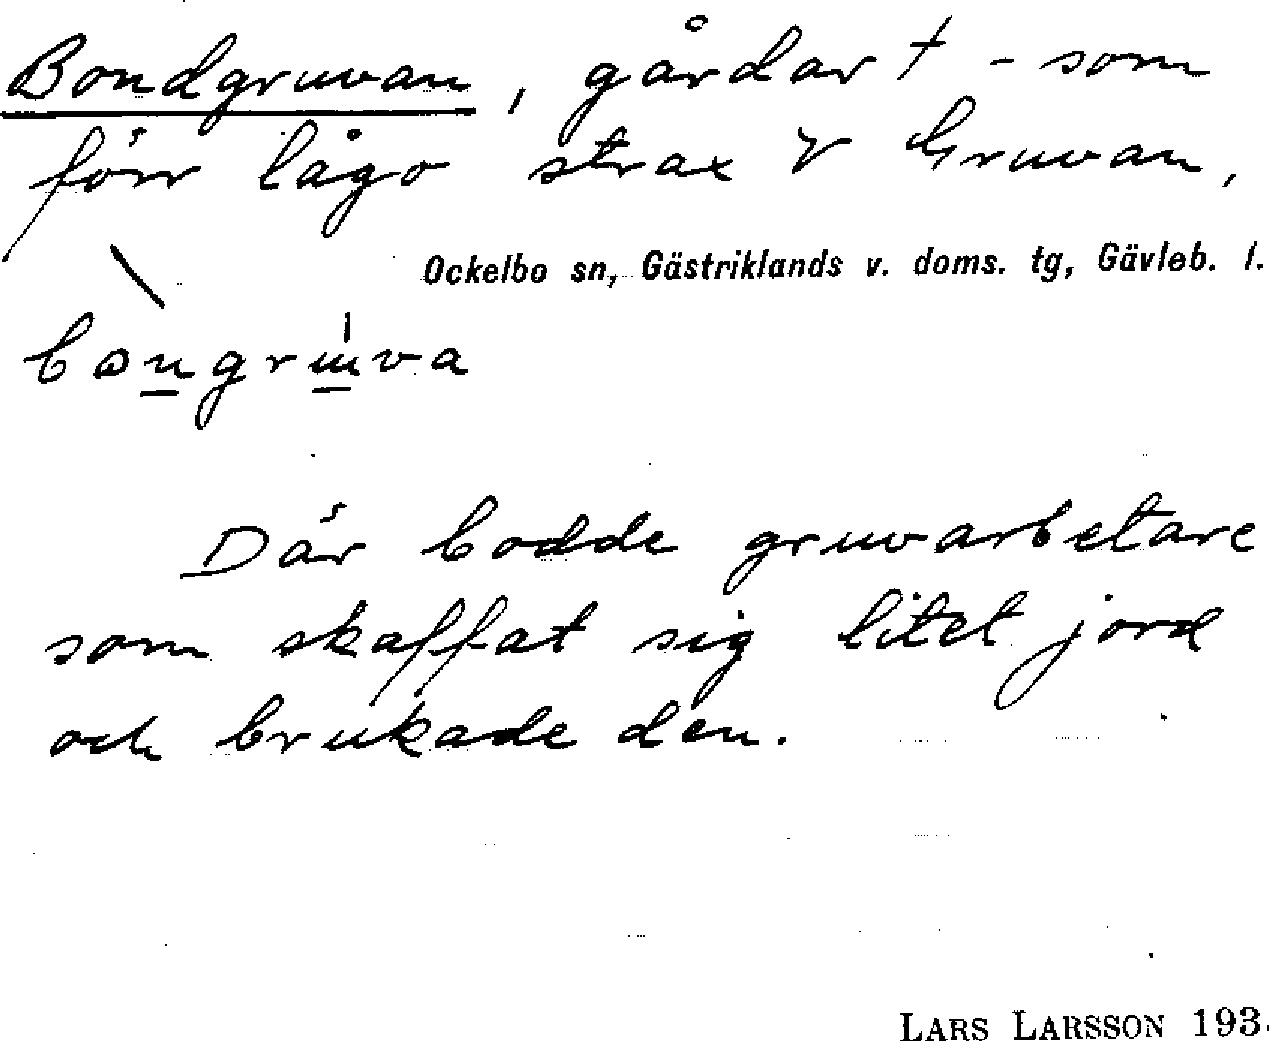 Bondgruvan, gårdar † - som
förr lågo strax V Gruvan,
Ockelbo sn, Gästriklands v. doms. tg, Gävleb. l.
bongruva
Där bodde gruvarbetare
som skaffat sig litet jord
och brukade den.
LARS LARSSON 193